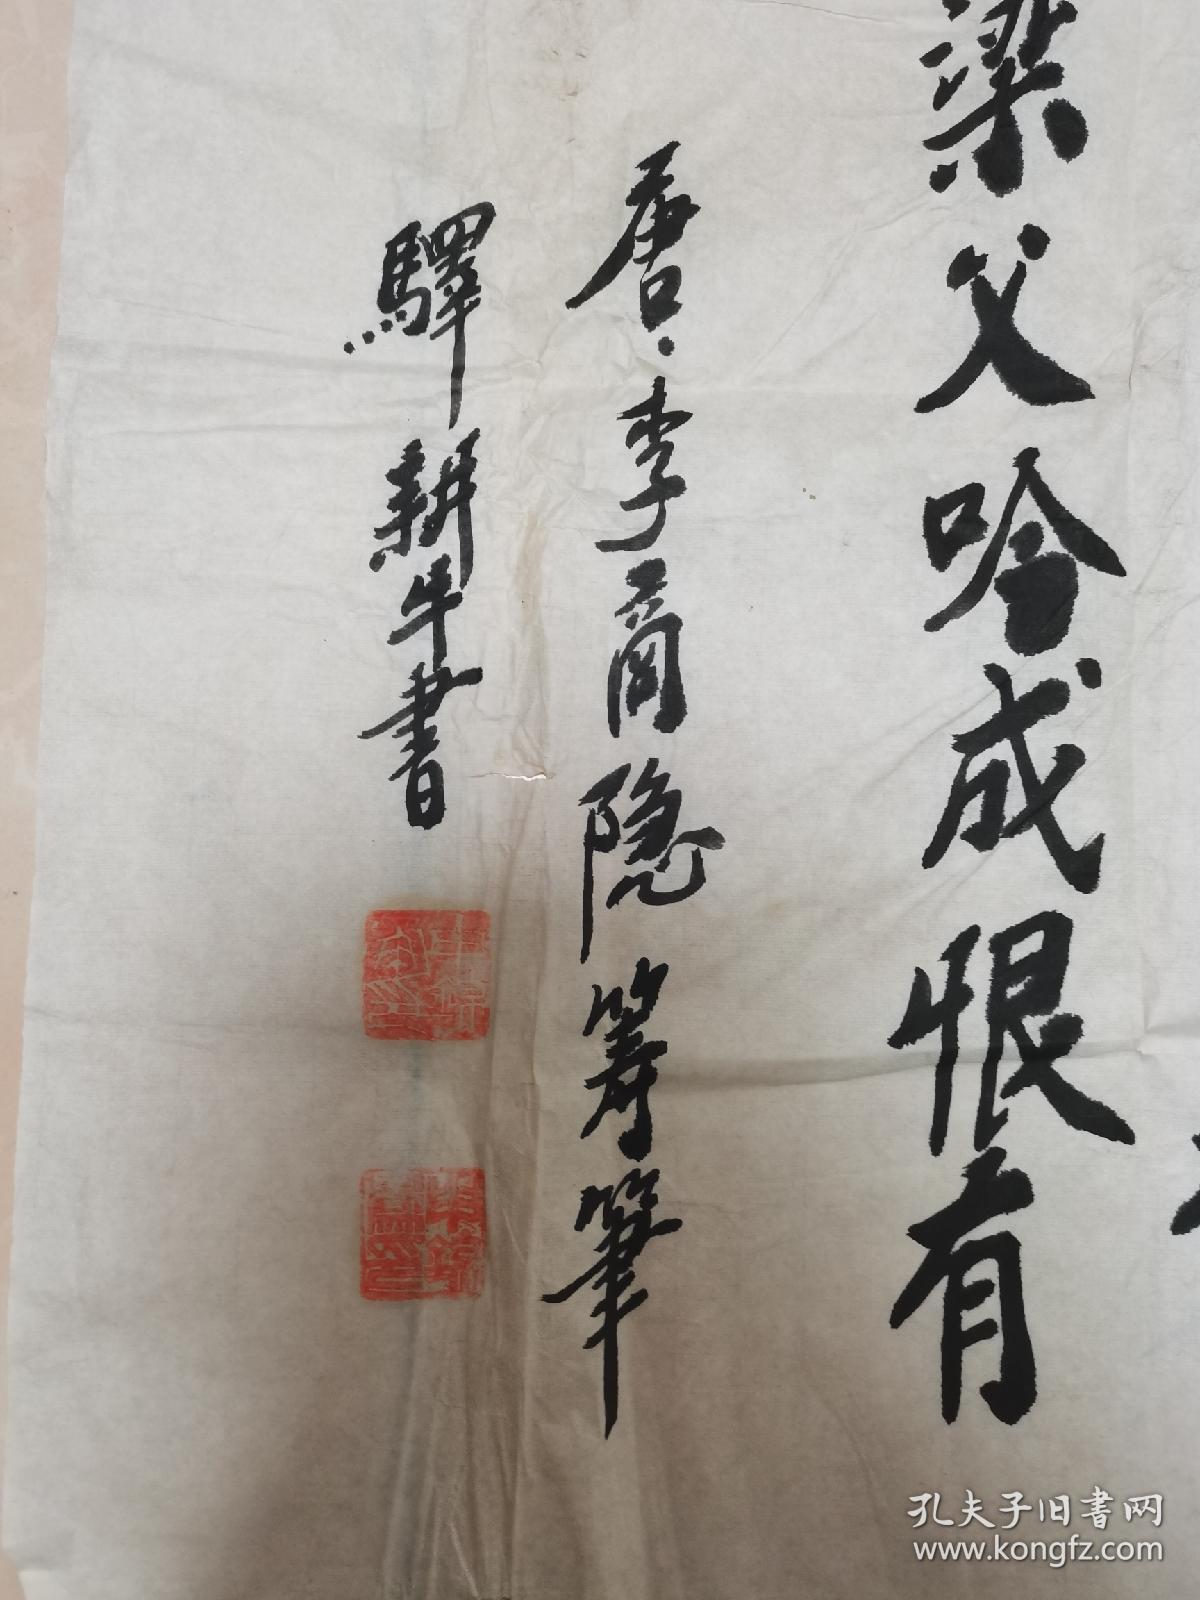 梁父吟成恨有
唐·李商隐筹筆
驛耕牛書
孔夫子旧書网
www.kongfz.com